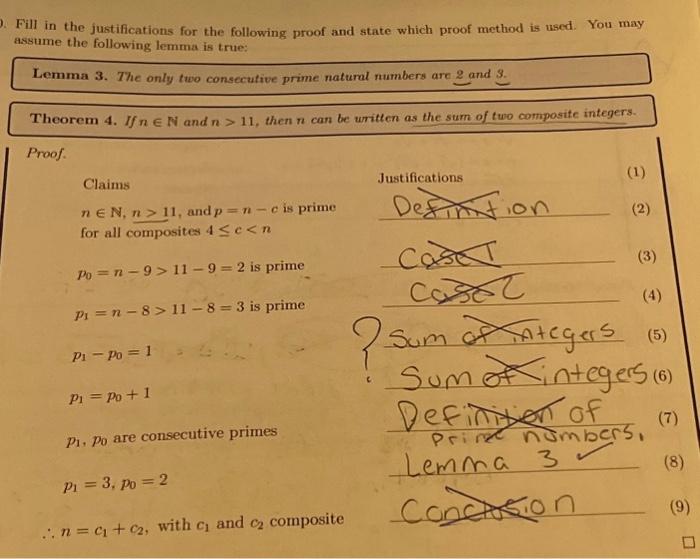 ). Fill in the justifications for the following proof and state which proof method is used. You may
assume the following lemma is true:
Lemma 3. The only two consecutive prime natural numbers are 2 and 3.
Theorem 4. If n ∈ ℕ and n > 11, then n can be written as the sum of two composite integers.
Proof.
Claims Justifications (1)
n ∈ ℕ, n > 11, and p = n − c is prime Definition (2)
for all composites 4 ≤ c < n
p₀ = n − 9 > 11 − 9 = 2 is prime Case 1 (3)
p₁ = n − 8 > 11 − 8 = 3 is prime Case 2 (4)
p₁ − p₀ = 1 ? Sum of integers (5)
p₁ = p₀ + 1 Sum of integers (6)
p₁, p₀ are consecutive primes Definition of (7)
Prime numbers.
p₁ = 3, p₀ = 2 Lemma 3 ✓ (8)
∴ n = c₁ + c₂, with c₁ and c₂ composite Conclusion (9)
□